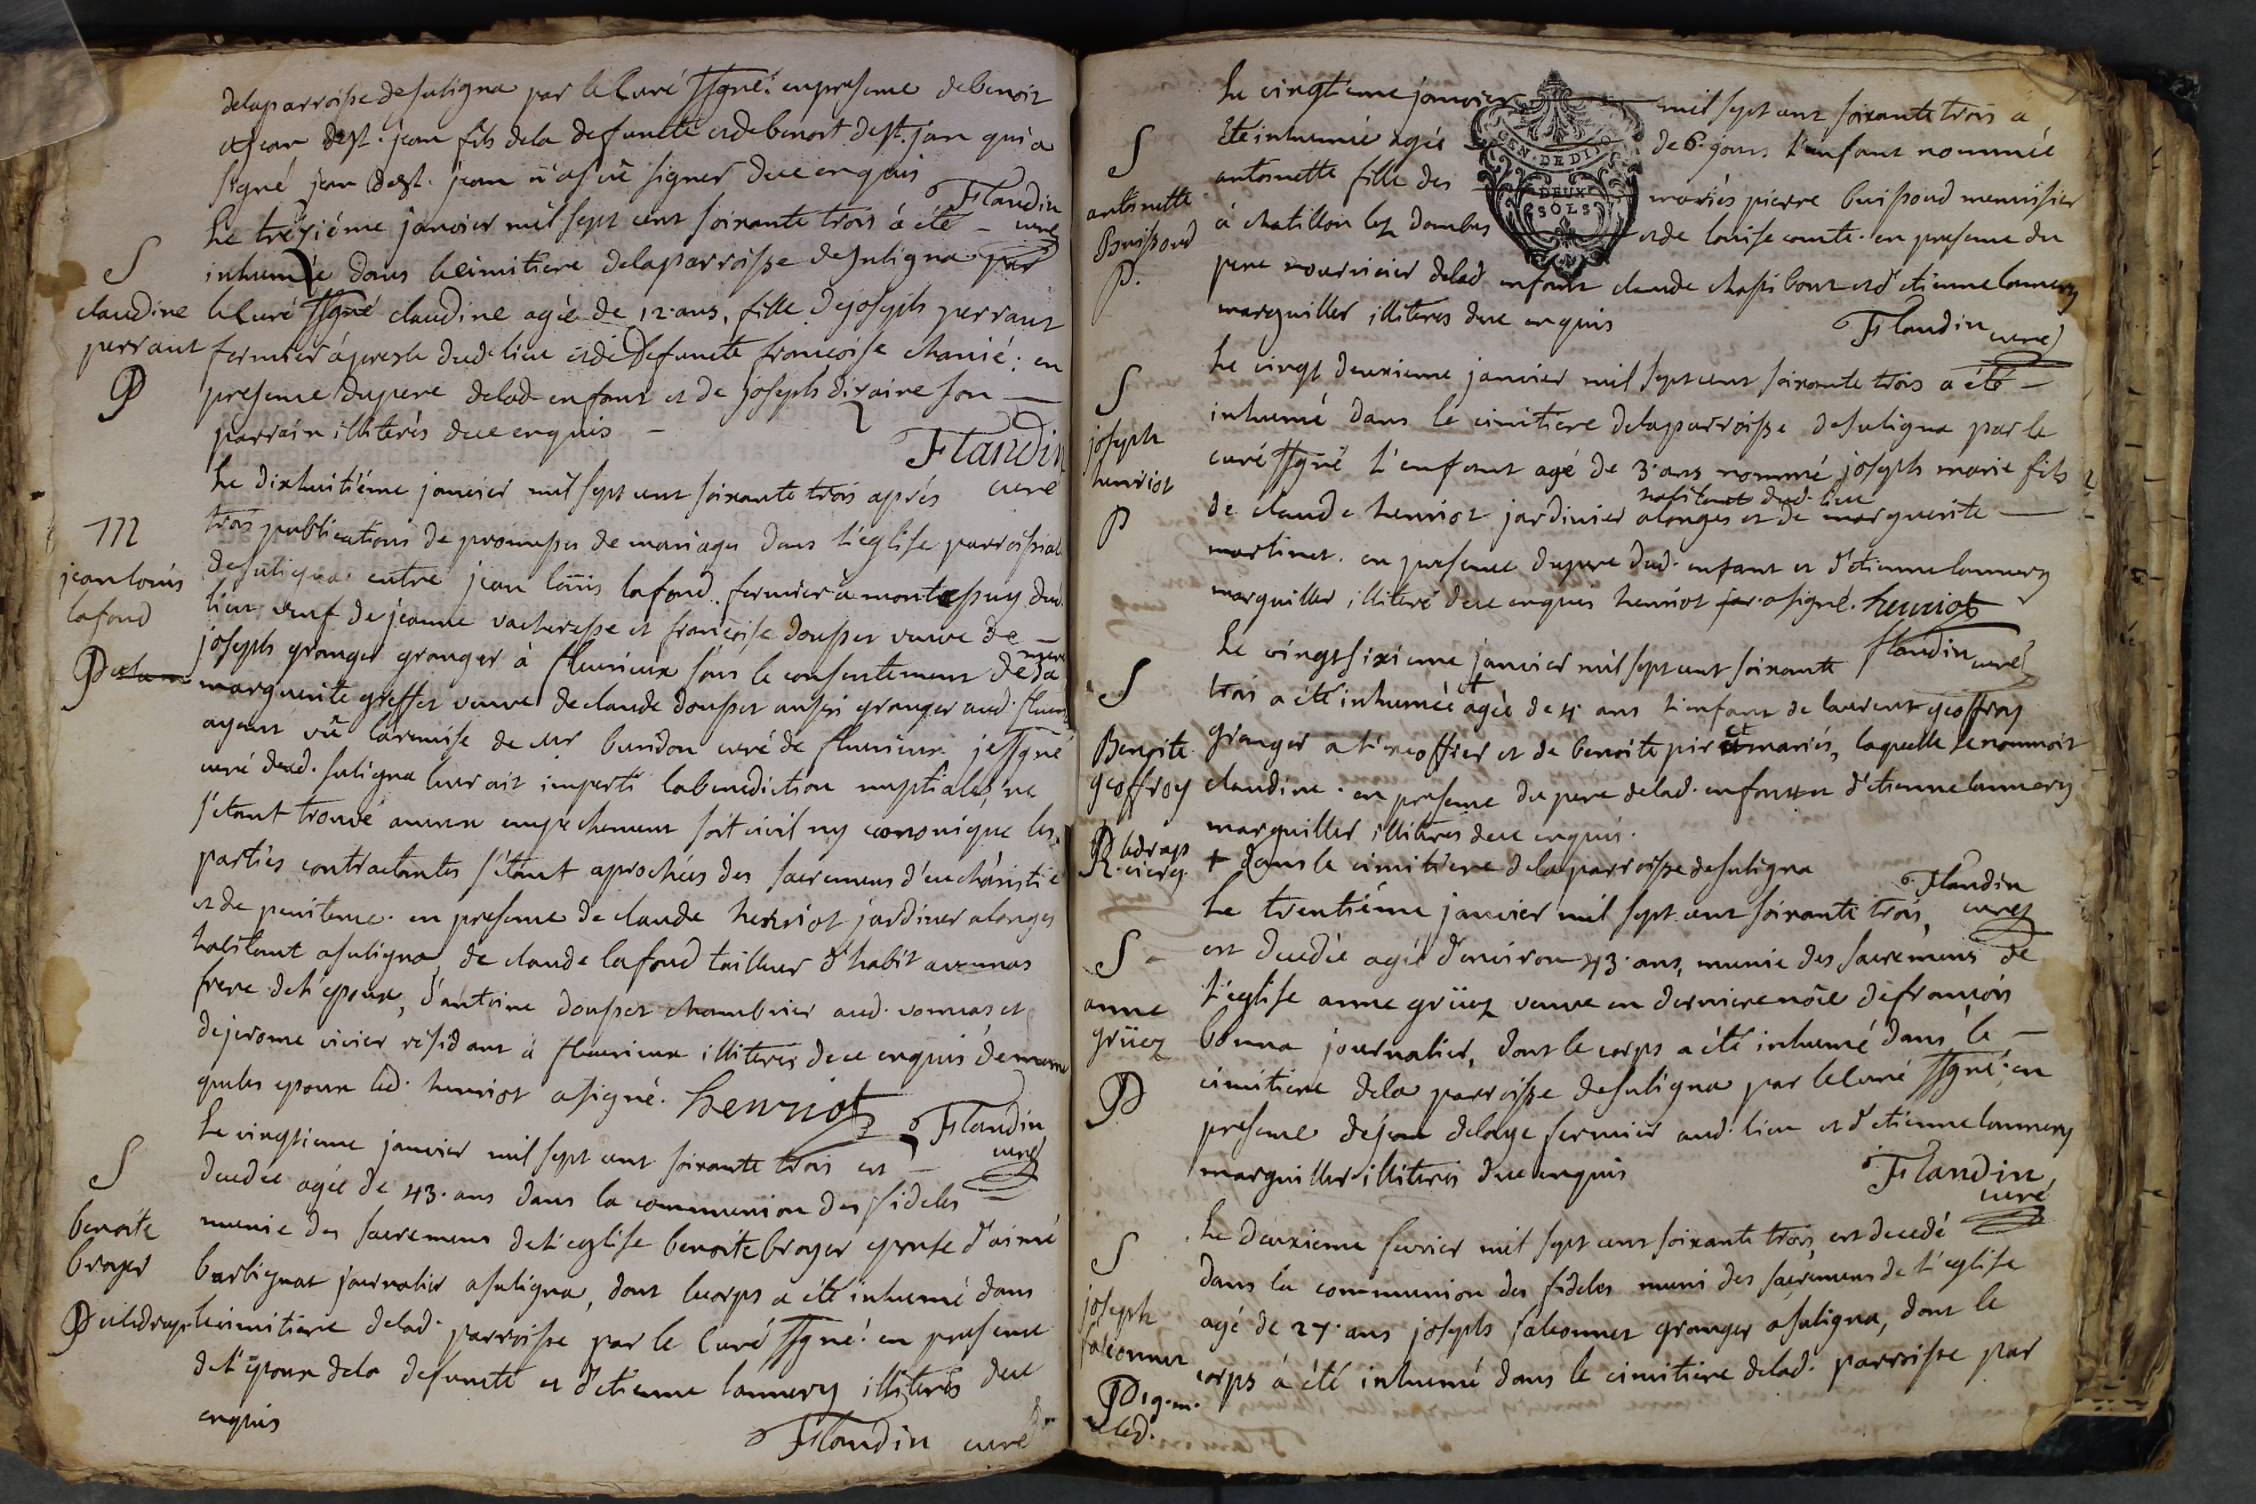 delaparroisse desuligna par leCuré ssgné: enpresence debenoit
etjean dest. jean fils dela defuncte etdebenoit dest. jan qui a
signé jean dest. jean n'asçu signer dece enquis
Flandin
curé
S
claudine
perraut
P
Le tréziéme janvier mil sept cent soixante trois à été –
inhumée dans lecimitiere delaparroisse desuligna par
leCuré ssgné claudine agée de 12 ans, fille dejoseph perraut
fermier dud. lieu etde defuncte françoise chanié: en
presence dupere delad. enfant et de joseph dizaire son –
parrain illiterés dece enquis –
Flandin
curé
M
jean louis
lafond
P
Le dixhuitiéme janvier mil sept cent soixante trois aprés
trois publications de promesses de mariages dans l'église parroissial
desuligna entre jean louis lafond. fermier à montessuy dud.
lieu veuf de jeanne vacheresse et françoise dousset veuve de –
joseph granger granger à fleurieux sous le consentement de sa mere
marguerite greffet veuve declaude dousset aussi granger aud. fleurieux
ayant vû laremise de Mr buridon curé de fleurieux je ssgné
curé dud. suligna leur ait imparti labenediction nuptiale, ne
s'étant trouvé aucun empechement soit civil ny canonique les
parties contractantes s'étant aprochées des sacremens d'eucharistie
et de penitence. en presence de claude henriot jardinier alonges
habitant asuligna, de claude lafond tailleur d'habit avonnas
frere del'epoux, d'antoine dousset chambrier aud. vonnas et
dejerome vivier résidant à fleurieux illiterés dece enquis de meme
queles epoux led. henriot asigné. henriot
Flandin
curé
S
benoite
broyer
P
Le vingtieme janvier mil sept cent soixante trois est –
decedée agée de 43. ans dans la communion des fideles
munie des sacremens del'eglise benoite broyer epouse d'aimé
barbignat journalier asuligna, dont lecorps a été inhumé dans
lecimitiere delad. parroisse par le Curé ssgné: en presence
del'epoux dela defuncte et d'etienne lannery illiterés dece
enquis
Flandin curé
S
antoinette
Buissoud
P.
Le vingtieme janvier mil sept cent soixante trois a
été inhumée agée de 6. jours l'enfant nommée
antoinette fille des mariés pierre buissoud menuisier
à chatillon lez dombes etde louise comte. en presence du
pere nourricier delad. enfant claude et d'etienne lannery
marguiller illiterés dece enquis
Flandin curé
GEN. DE DIJO
DEUX
SOLS
S
joseph
henriot
P
Le vingt deuxieme janvier mil sept cent soixante trois a été –
inhumé dans le cimitiere delaparroisse desuligna par le
curé ssgné l'enfant agé de 3. ans nommé joseph marie fils
habitant dud. lieu
de claude henriot jardinier alonges et de marguerite –
martinet. en presence dupere dud. enfant et d'etienne lannery
marguiller illiteré dece enquis henriot asigné. henriot
Flandin curé
S
Benoite
geoffroy
P
Le vingtsixieme janvier mil sept cent soixante
trois a été inhumée + agée de 4 ans l'enfant de laurent geoffroy
granger a et de benoite mariés, laquelle senommoit
claudine. en presence du pere delad. enfant et d'etienne lannery
marguiller illiterés dece enquis.
+ dans le cimitiere delaparroisse desuligna
Flandin
curé
S –
anne
grüez
P
Le trentiéme janvier mil sept cent soixante trois,
est decedée agée d'environ 43. ans, munie des sacremens de
l'eglise anne grüez veuve en derniere nôce defrançois
bonna journalier, dont le corps a été inhumé dans le –
cimitiere dela parroisse desuligna par leCuré ssgné. en
presence dejean delaye fermier aud. lieu et d'etienne lannery
marguiller illiterés dece enquis
Flandin,
curé
S
joseph
falconnet
P
Le deuxieme fevrier mil sept cent soixante trois, est decedé
dans la communion des fideles muni des sacremens de l'eglise
agé de 27. ans joseph falconnet granger asuligna, dont le
corps à été inhumé dans le cimitiere delad. parroisse par